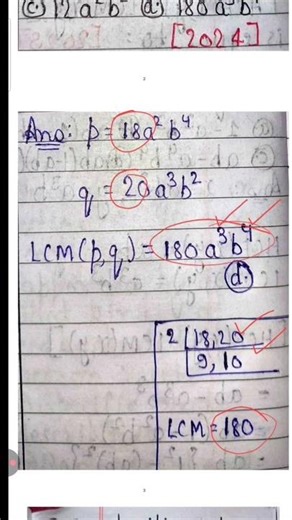 (c) 12a²b² (d) 180a³b⁴
[2024]
Ans: p = 18a²b⁴
q = 20a³b²
LCM(p,q) = 180a³b⁴
(d)
2 | 18, 20
9, 10
LCM = 180